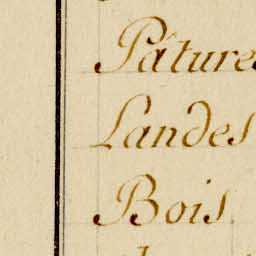 Pâture
Landes
Bois